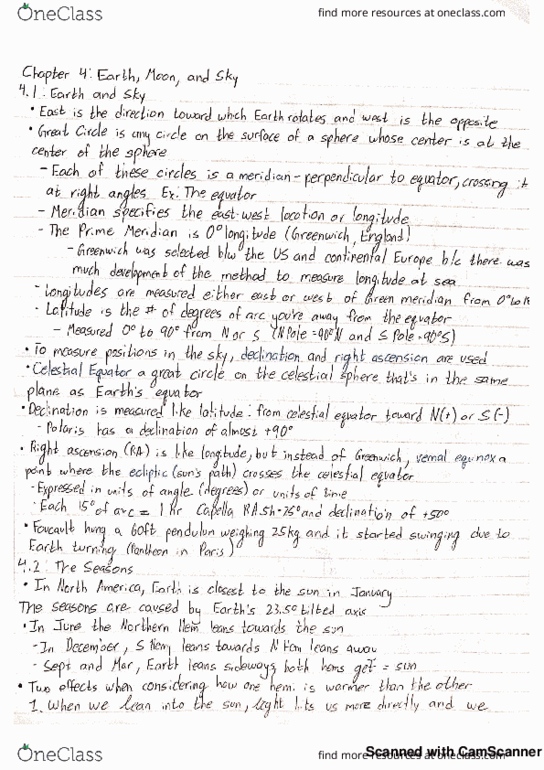 OneClass
find more resources at oneclass.com
Chapter 4: Earth, Moon, and Sky
4.1: Earth and Sky
• East is the direction toward which Earth rotates and west is the opposite
• Great Circle is any circle on the surface of a sphere whose center is at the
center of the sphere
- Each of these circles is a meridian - perpendicular to equator, crossing it
at right angles. Ex: The equator
- Meridian specifies the east-west location or longitude
- The Prime Meridian is 0° longitude (Greenwich, England)
- Greenwich was selected b/w the US and continental Europe b/c there was
much development of the method to measure longitude at sea
- Longitudes are measured either east or west of Green meridian from 0° to
- Latitude is the # of degrees of arc you're away from the equator
- Measured 0° to 90° from N or S (N Pole = 90°N and S Pole = 90°S)
• To measure positions in the sky, declination and right ascension are used
• Celestial Equator a great circle on the celestial sphere that's in the same
plane as Earth's equator
• Declination is measured like latitude: from celestial equator toward N(+) or S(-)
- Polaris has a declination of almost +90°
• Right ascension (RA) is like longitude, but instead of Greenwich, vernal equinox a
point where the ecliptic (sun's path) crosses the celestial equator
- Expressed in units of angle (degrees) or units of time
- Each 15° of arc = 1 Hr Capella RA 5h and declination of +50°
• Foucault hung a 60ft pendulum weighing 25kg and it started swinging due to
Earth turning (Pantheon in Paris)
4.2: The Seasons
• In North America, Earth is closest to the sun in January
The seasons are caused by Earth's 23.5° tilted axis
• In June the Northern Hem leans towards the sun
- In December, S Hem leans towards N Hem leans away
- Sept and Mar, Earth leans sideways both hems get = sun
• Two effects when considering how one hemi is warmer than the other
1. When we lean into the sun, light hits us more directly and we
OneClass
find more resources at oneclass.com
Scanned with CamScanner